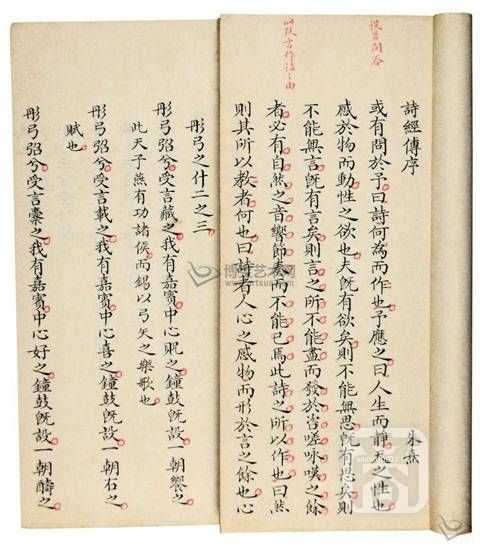 詩經傳序
朱熹
或有問於予曰詩何為而作也予應之曰人生而靜天之性也
感於物而動性之欲也夫既有欲矣則不能無思既有思矣則
不能無言既有言矣則言之所不能盡而發於咨嗟咏嘆之餘
者必有自然之音響節奏而不能已焉此詩之所以作也曰然
則其所以教者何也曰詩者人心之感物而形於言之餘也心
彤弓之什二之三
彤弓弨兮受言藏之我有嘉賓中心貺之鐘鼓既設一朝饗之
此天子燕有功諸侯而錫以弓矢之樂歌也
彤弓弨兮受言載之我有嘉賓中心喜之鐘鼓既設一朝右之
賦也
彤弓弨兮受言櫜之我有嘉賓中心好之鐘鼓既設一朝醻之